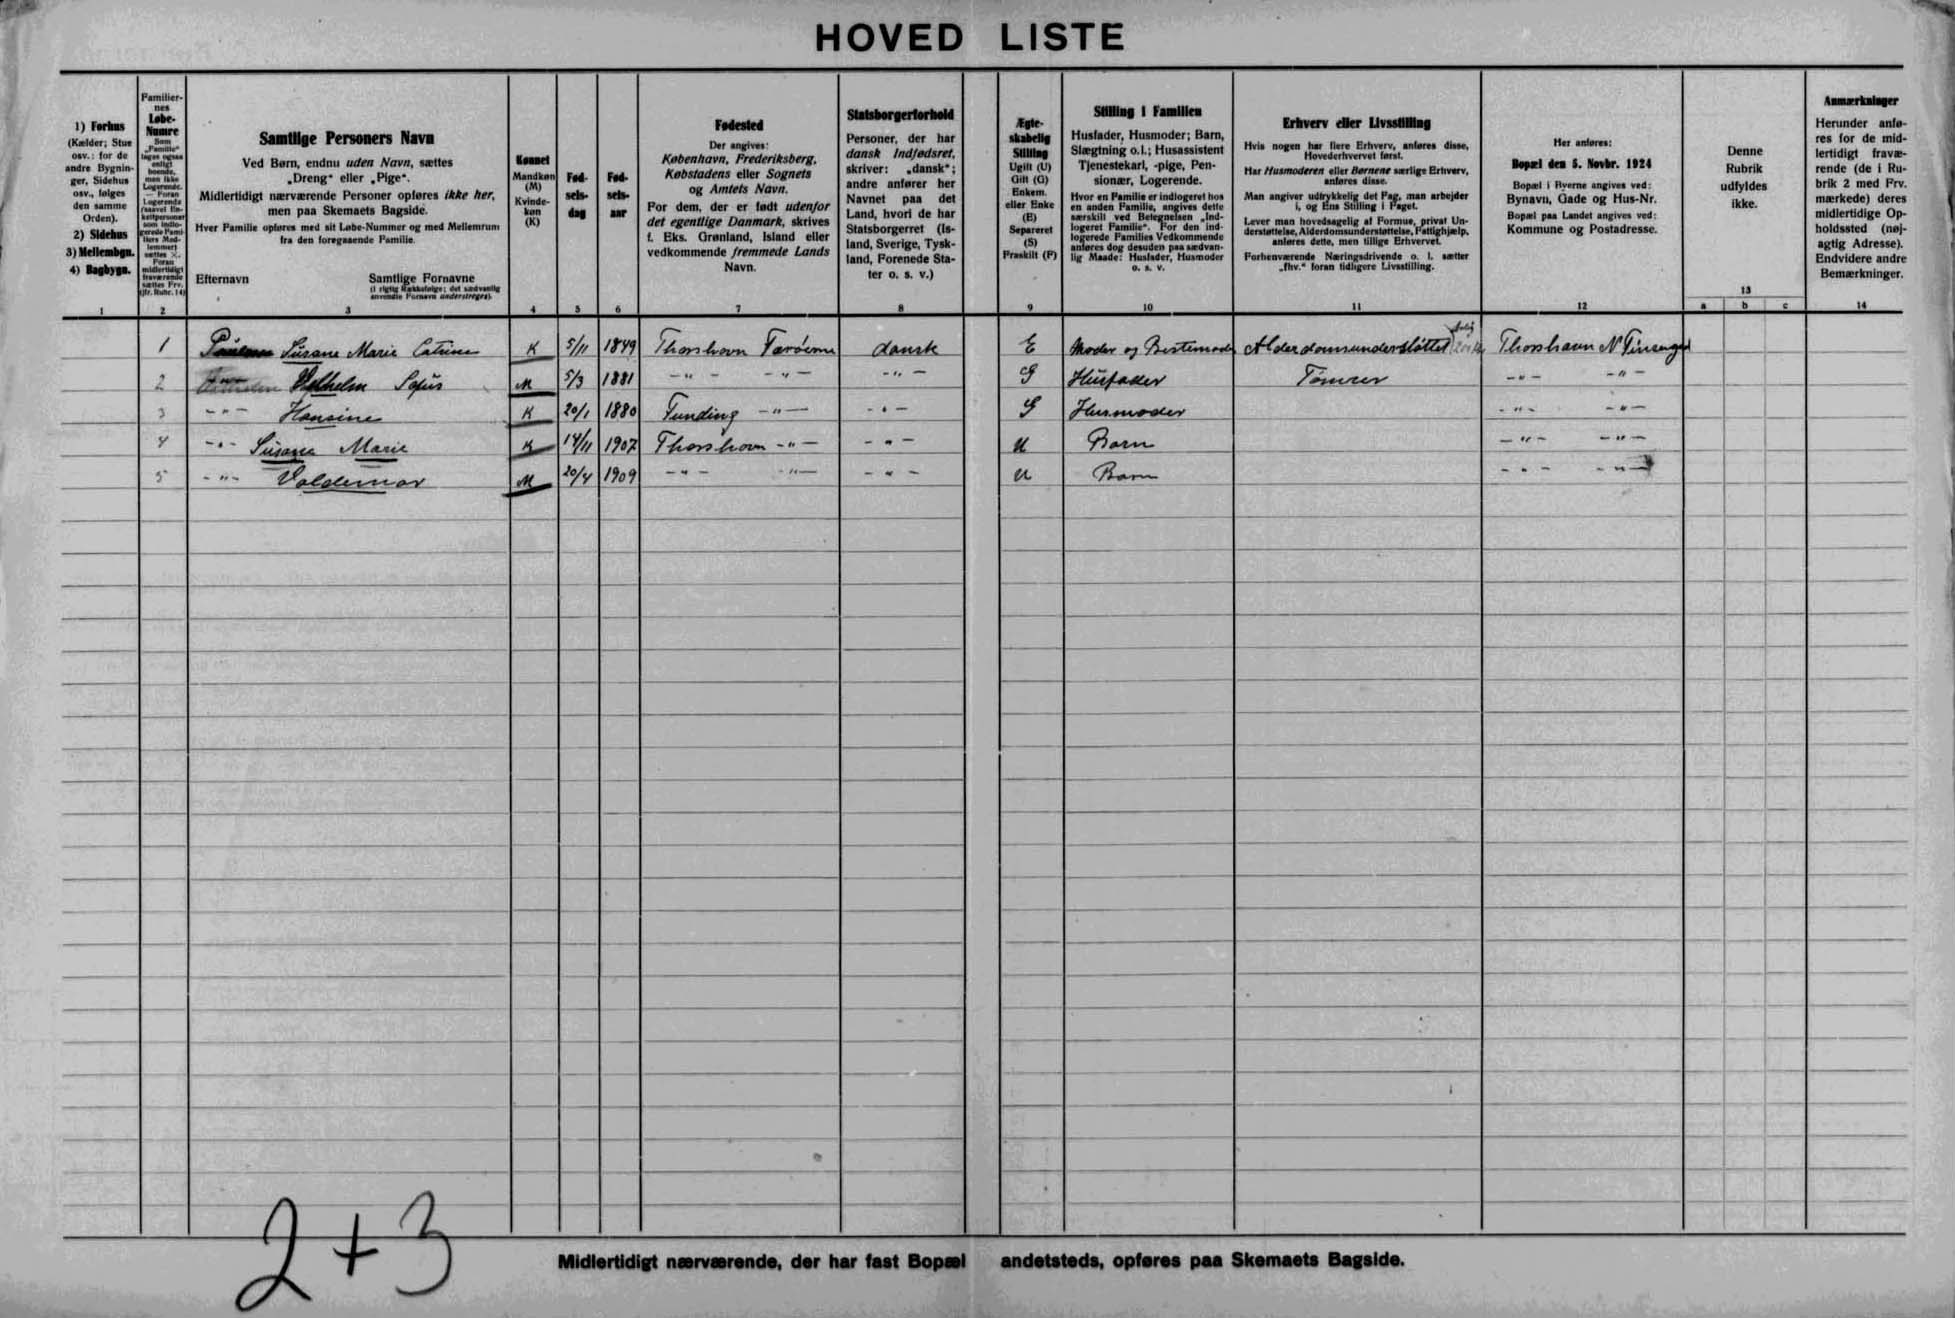 HOVED LISTE
1) Forhus
(Kælder; Stue
osv.: for de
andre Bygnin-
ger, Sidehus
osv., følges
den samme
Orden).
2) Sidehus
3) Mellembgn.
4) Bagbygn.
1
Familier-
nes
Løbe-
Numre
Som
„Familie“
tages ogsaa
enligt
boende,
men ikke
Logerende.
— Foran
Logerende
sættes ×.
Foran
midlertidigt
fraværende
sættes Frv.
(jfr. Rubr. 14)
2
Samtlige Personers Navn
Ved Børn, endnu uden Navn, sættes
„Dreng“ eller „Pige“.
Midlertidigt nærværende Personer opføres ikke her,
men paa Skemaets Bagside.
Hver Familie opføres med sit Løbe-Nummer og med Mellemrum
fra den foregaaende Familie.
Efternavn
Samtlige Fornavne
(i rigtig Rækkefølge; det sædvanlig
anvendte Fornavn understreges).
3
Kønnet
Mandkøn
(M)
Kvinde-
køn
(K)
4
Fød-
sels-
dag
5
Fød-
sels-
aar
6
Fødested
Der angives:
København, Frederiksberg,
Købstadens eller Sognets
og Amtets Navn.
For dem, der er født udenfor
det egentlige Danmark, skrives
f. Eks. Grønland, Island eller
vedkommende fremmede Lands
Navn.
7
Statsborgerforhold
Personer, der har
dansk Indfødsret,
skriver: „dansk“;
andre anfører her
Navnet paa det
Land, hvori de har
Statsborgerret (Is-
land, Sverige, Tysk-
land, Forenede Sta-
ter o. s. v.)
8
Ægte-
skabelig
Stilling
Ugift (U)
Gift (G)
Enkem.
eller Enke
(E)
Separeret
(S)
Fraskilt (F)
9
Stilling i Familien
Husfader, Husmoder; Barn,
Slægtning o.l.; Husassistent
Tjenestekarl, -pige, Pen-
sionær, Logerende.
Hvor en Familie er indlogeret hos
en anden Familie, angives dette
særskilt ved Betegnelsen „Ind-
logeret Familie“. For den ind-
logerede Families Vedkommende
anføres dog desuden paa sædvan-
lig Maade: Husfader, Husmoder
o. s. v.
10
Erhverv eller Livsstilling
Hvis nogen har flere Erhverv, anføres disse,
Hovederhvervet først.
Har Husmoderen eller Børnene særlige Erhverv,
anføres disse.
Man angiver udtrykkelig det Fag, man arbejder
i, og Ens Stilling i Faget.
Lever man hovedsagelig af Formue, privat Un-
derstøttelse, Alderdomsunderstøttelse, Fattighjælp,
anføres dette, men tillige Erhvervet.
Forhenværende Næringsdrivende o. l. sætter
„fhv.“ foran tidligere Livsstilling.
11
Her anføres:
Bopæl den 5. Novbr. 1924
Bopæl i Byerne angives ved:
Bynavn, Gade og Hus-Nr.
Bopæl paa Landet angives ved:
Kommune og Postadresse.
12
Denne
Rubrik
udfyldes
ikke.
13
a b c
Anmærkninger
Herunder anfø-
res for de mid-
lertidigt fravæ-
rende (de i Ru-
brik 2 med Frv.
mærkede) deres
midlertidige Op-
holdssted (nøj-
agtig Adresse).
Endvidere andre
Bemærkninger.
14
1 Susane Marie Catrine K 5/11 1849 Thorshavn Færöerne dansk E Moder og Bestemoder Alderdomsunderstöttet Thorshavn N
2 Vilhelm Sofus M 5/3 1881 -"- -"- -"- G Husfader Tömrer -"- -"-
3 -"- Hansine K 20/1 1880 Funding -"- -"- G Husmoder -"- -"-
4 -"- Susane Marie K 14/11 1907 Thorshavn -"- -"- U Barn -"- -"-
5 -"- Valdemar M 20/4 1909 -"- -"- -"- U Barn -"- -"-
2+3
Midlertidigt nærværende, der har fast Bopæl andetsteds, opføres paa Skemaets Bagside.